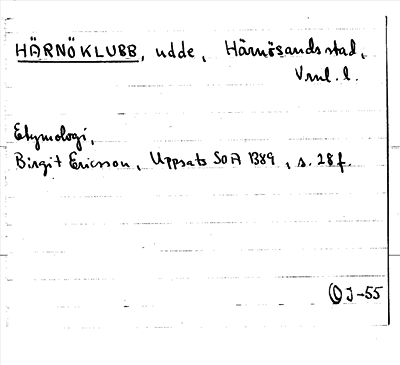 HÄRNÖKLUBB, udde, Härnösands stad,
Vrnl. l.
Etymologi,
Birgit Ericsson, Uppsats SOA 1389, s. 28 f.
J-55